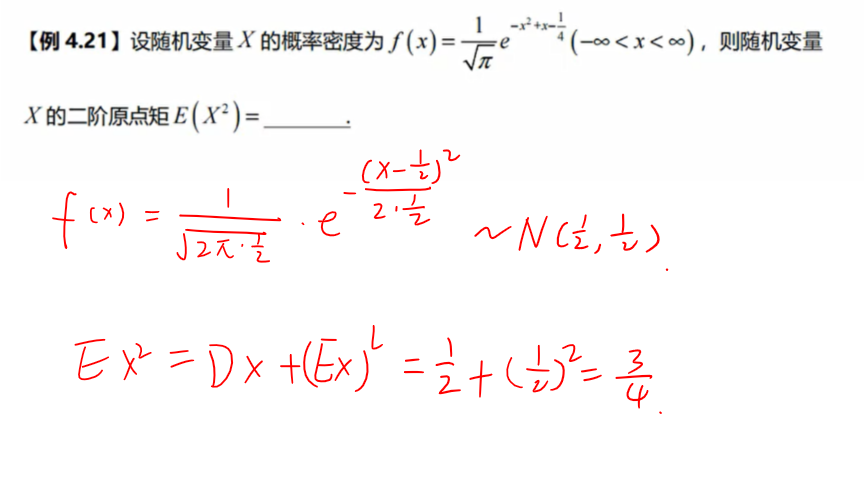 【例 4.21】设随机变量 X 的概率密度为 f(x)=1/√π e^(-x²+x-1/4) (-∞<x<∞)，则随机变量
X 的二阶原点矩 E(X²)=______.
f(x) = 1/√(2π·1/2) · e^(-(x-1/2)²/(2·1/2)) ~N(1/2, 1/2).
EX² = DX+(EX)² = 1/2+(1/2)² = 3/4.